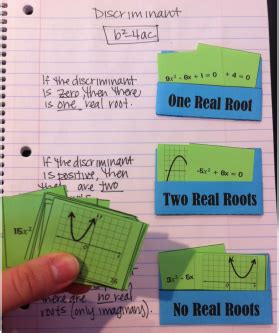 Discriminant
b²-4ac
If the discriminant
is zero then there
is one real root.
9x² - 6x + 1 = 0
+ 4 = 0
One Real Root
If the discriminant
is positive, then
are two
-5x² + 8x = 0
Two Real Roots
15x²
3x² - 5x
there are no real
roots (only imaginary).
No Real Roots